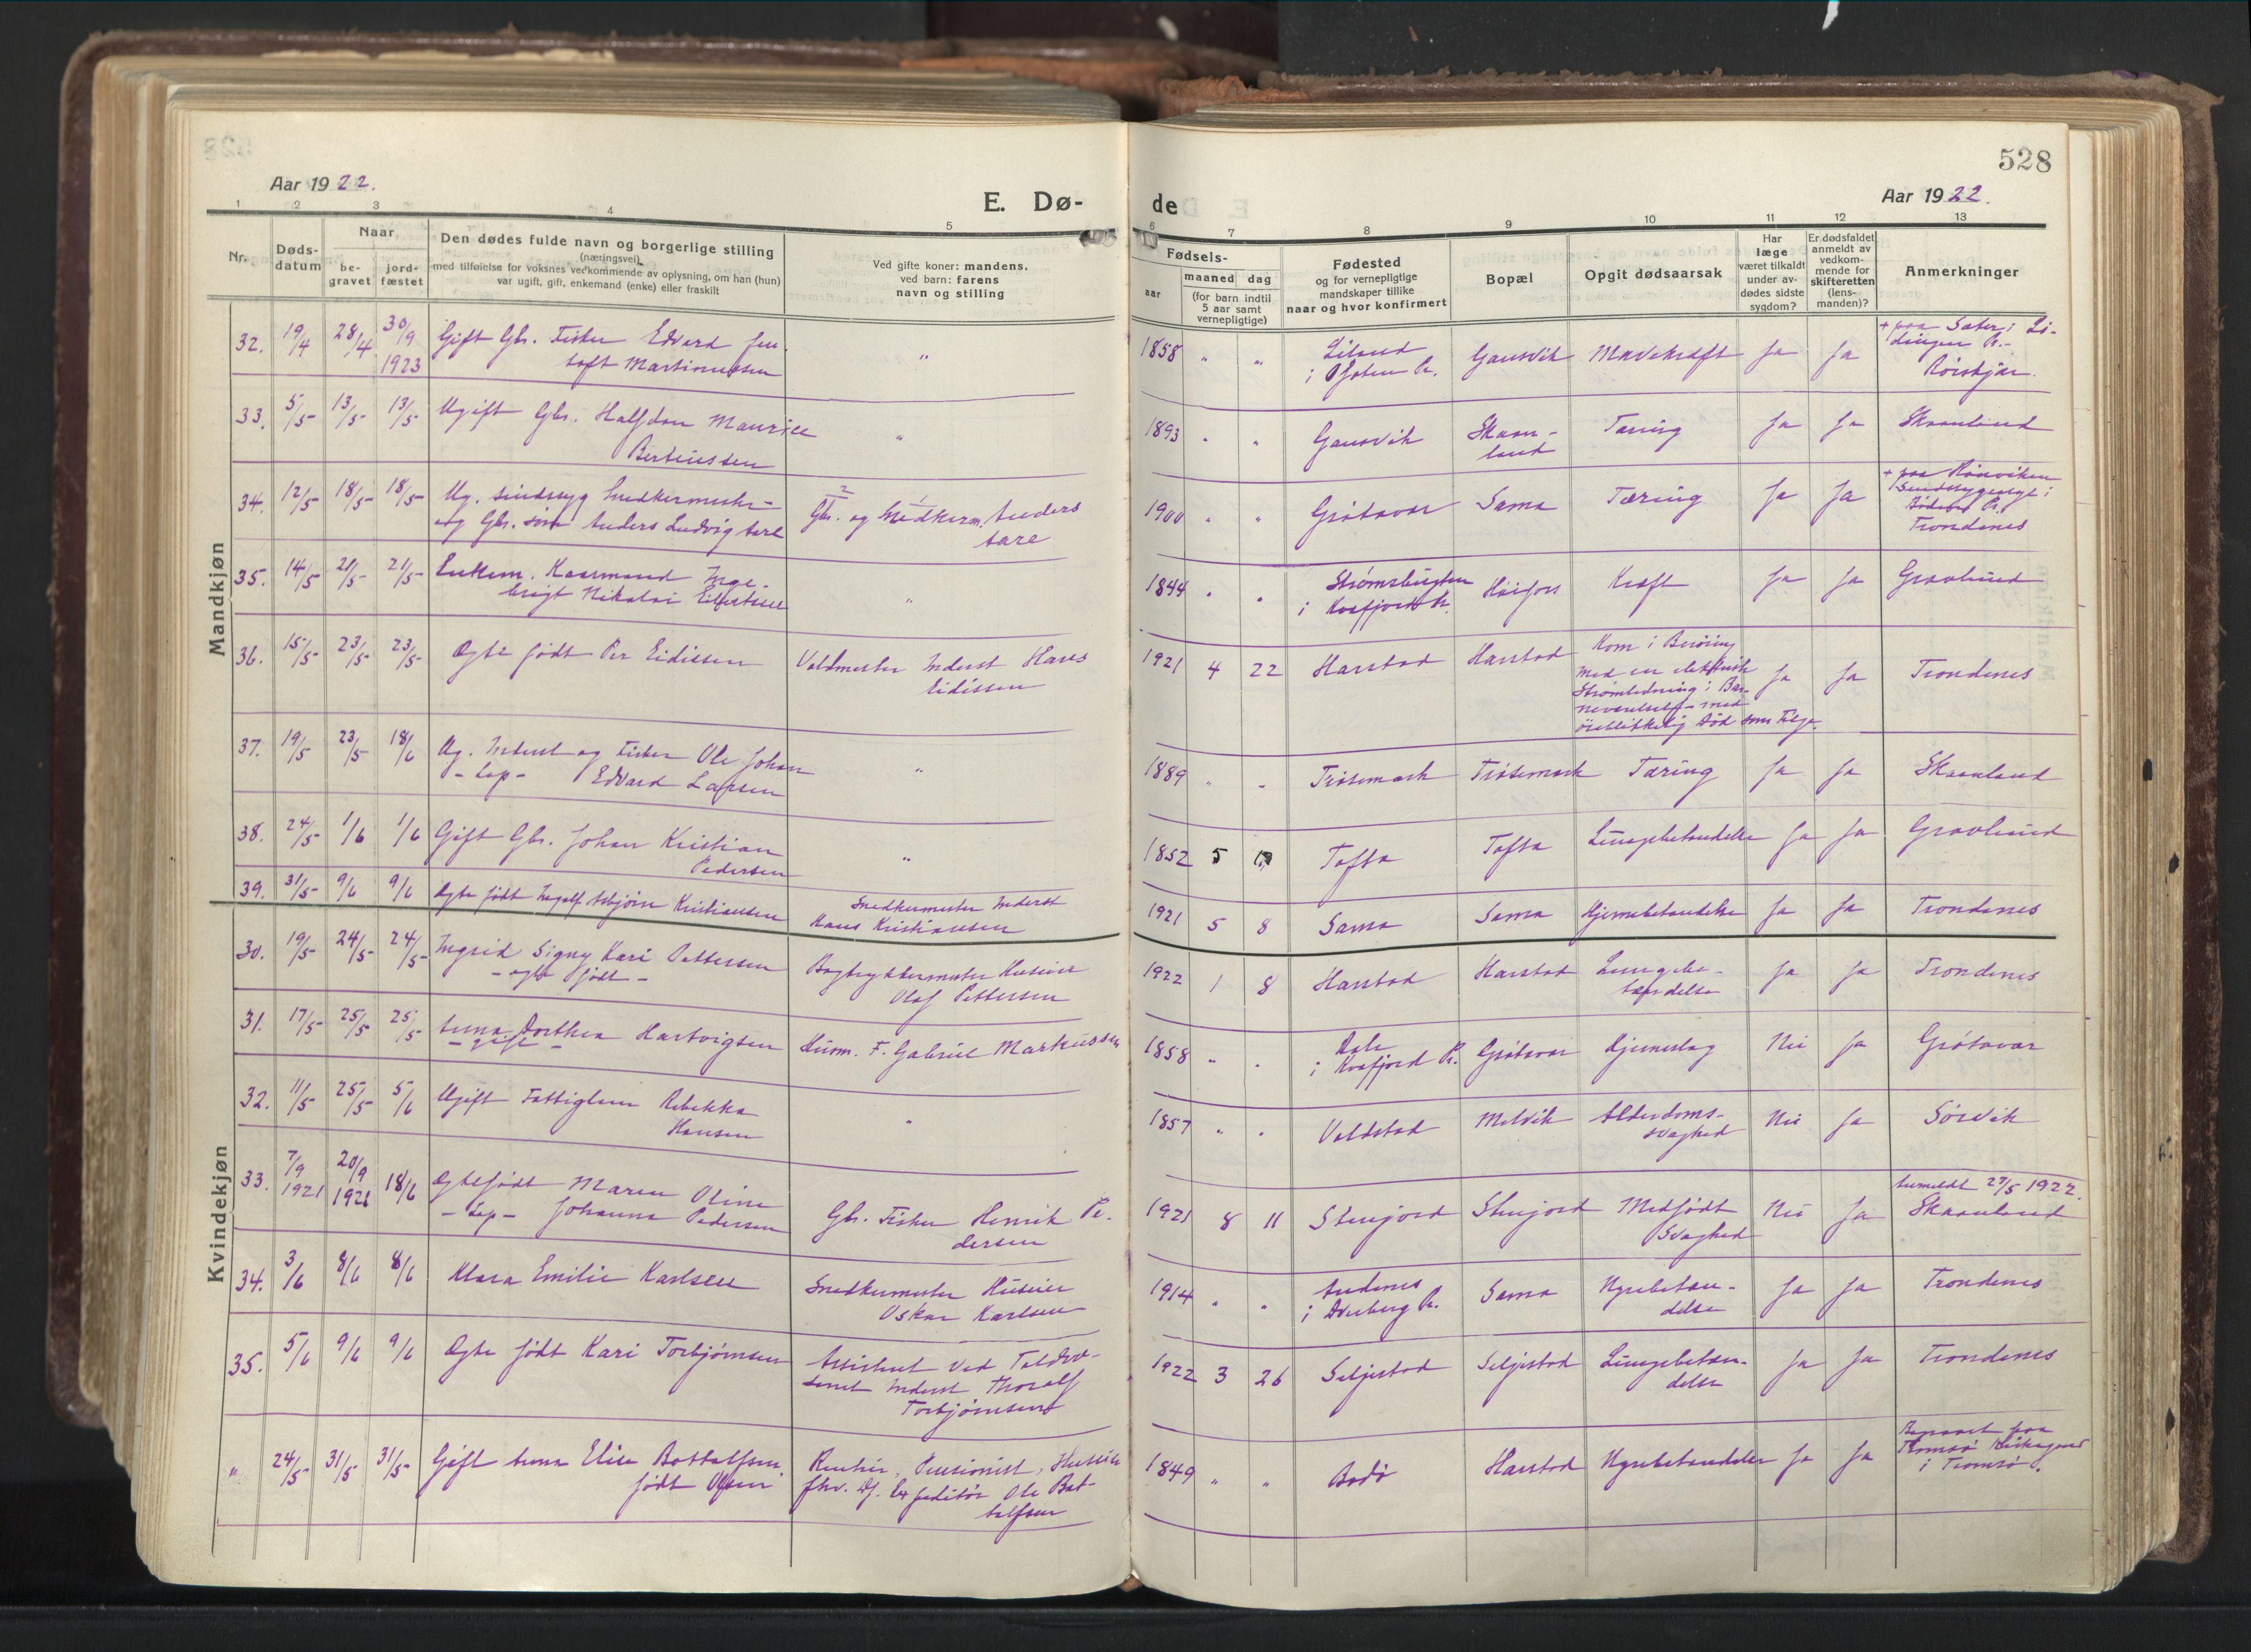 528
Aar 1922.
E. Dø-
de
Aar 1922.
1 2 3 4 5 6 7 8 9 10 11 12 13
Nr.
Døds-
datum
Naar
be-
gravet
jord-
fæstet
Den dødes fulde navn og borgerlige stilling
(næringsvei)
med tilføielse for voksnes vedkommende av oplysning, om han (hun)
var ugift, gift, enkemand (enke) eller fraskilt
Ved gifte koner: mandens,
ved barn: farens
navn og stilling
Fødsels-
aar
maaned dag
(for barn indtil
5 aar samt
vernepligtige)
Fødested
og for vernepligtige
mandskaper tillike
naar og hvor konfirmert
Bopæl
Opgit dødsaarsak
Har
læge
været tilkaldt
under av-
dødes sidste
sygdom?
Er dødsfaldet
anmeldt av
vedkom-
mende for
skifteretten
(lens-
manden)?
Anmerkninger
Mandkjøn
32. 19/4 28/4 30/9 1923 Gift Gbr. Fisker Edvard Jen-
toft Martinussen " 1858 " " Liland
i Ofoten Pr. Gausvik Mavekræft Ja Ja + paa Sater i Lø-
dingen Pr.-
Rørskjær.
33. 5/5 13/5 13/5 Ugift Gbr. Halfdan Maurice
Berteussen " 1893 " " Gausvik Skaan-
land Tæring Ja Ja Skaanland
34. 12/5 18/5 18/5 Ug. sindssyg Snedkermester-
og Gbr. søn Anders Ludvig Aare Gbr. og Snedkerm. Anders
Aare 1900 " " Grøtavær Sama Tæring Ja Ja + paa Rønviken
Sindssygeasyl i
Bodø Pr.
Trondenes
35. 14/5 21/5 21/5 Enkem. Kaarmand Inge-
brigt Nikolai Eilertsen " 1844 " " Strømsbugten
i Kvæfjord Pr. Høifors Kræft Ja Ja Gravlund
36. 15/5 23/5 23/5 Ægte født Per Eidissen Valdmester Inderst Hans
Eidissen 1921 4 22 Harstad Harstad Kom i Berøring
med en elektrisk
Strømledning i Bar-
neværelset - med
øieblikkelig Død som Følge. Ja Ja Trondenes
37. 19/5 23/5 18/6 Ug. Inderst og Fisker Ole Johan
- Lap - Edvard Larsen " 1889 " " Trøsemark Trøsemark Tæring Ja Ja Skaanland
38. 24/5 1/6 1/6 Gift Gbr. Johan Kristian
Pedersen " 1852 5 Tofta Tofta Lungebetændelse Ja Ja Gravlund
39. 31/5 9/6 9/6 Ægte født Ingolf Asbjørn Kristiansen Snedkermester Inderst
Hans Kristiansen 1921 5 8 Sama Sama Hjernebetændelse Ja Ja Trondenes
Kvindekjøn
30. 19/5 24/5 24/5 Ingrid Signy Kari Pettersen
- ægte født - Bogtrykkermester Huseier
Olaf Pettersen 1922 1 8 Harstad Harstad Lungebe-
tændelse Ja Ja Trondenes
31. 17/5 25/5 25/5 Anna Dorthea Hartvigsen
- gift - Husm. F. Gabriel Markussen 1858 " " Dale
i Kvæfjord Pr. Grøtavær Hjerneslag Nei Ja Grøtavær
32. 11/5 25/5 5/6 Ugift Fattiglem Rebekka
Hansen " 1857 " " Voldstad Melvik Alderdoms-
svaghed Nei Ja Sørvik
33. 7/9 1921 20/9 1921 18/6 Ægtefødt Maren Oline
- Lap - Johanna Pedersen Gbr. Fisker Henrik Pe-
dersen 1921 8 11 Stenjord Stenjord Medfødt
Svaghed Nei Ja Anmeldt 27/5 1922.
Skaanland
34. 3/6 8/6 8/6 Klara Emilie Karlsen Snedkermester Huseier
Oskar Karlsen 1914 " " Andenes
i Dverberg Pr. Sama Nyrebetæn-
delse Ja Ja Trondenes
35. 5/6 9/6 9/6 Ægte født Kari Torbjørnsen Assistent ved Toldvæ-
senet Inderst Thoralf
Torbjørnsen 1922 3 26 Seljestad Seljestad Lungebetæn-
delse Ja Ja Trondenes
" 24/5 31/5 31/5 Gift Anna Elise Bottolfsen
født Olsen Rentier, Pensionist, Huseier
fhv. Ds. Expeditør Ole Bot-
tolfsen 1849 " " Bodø Harstad Nyrebetændelse Ja Ja Begravet paa
Tromsø Kirkegaard
i Tromsø.